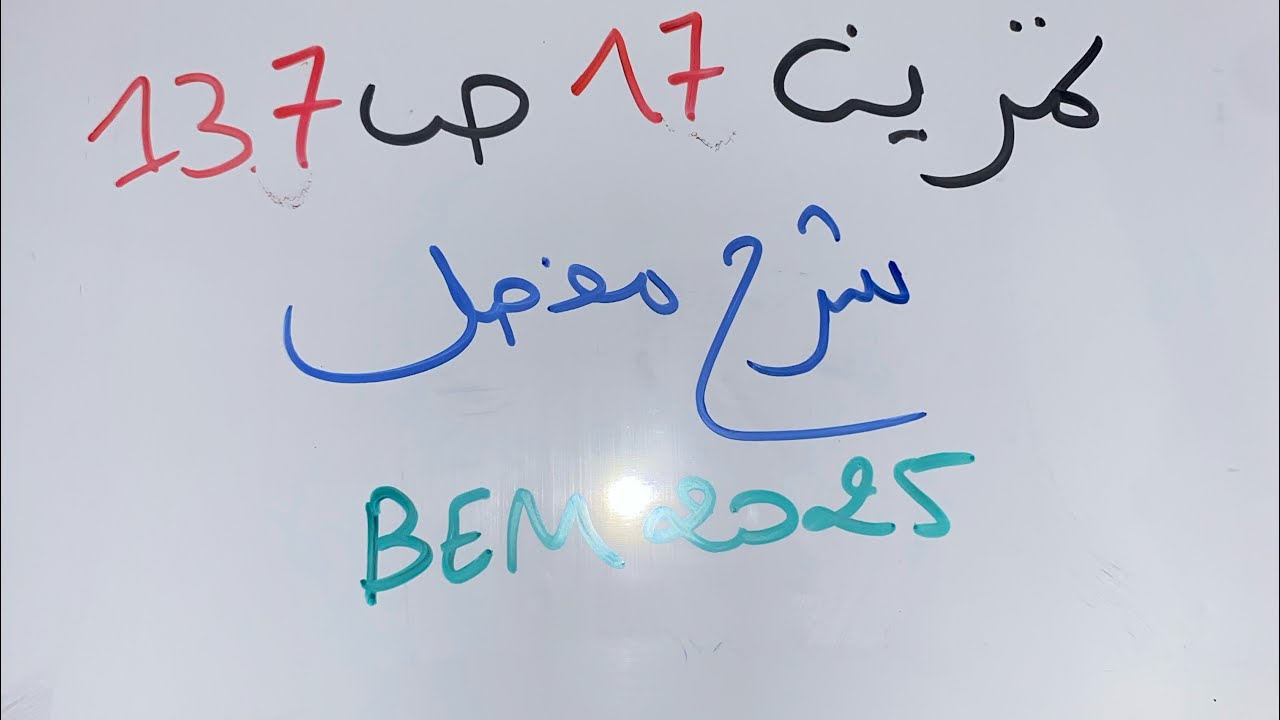 تمرين 17 ص 137
شرح مفصل
BEM 2025